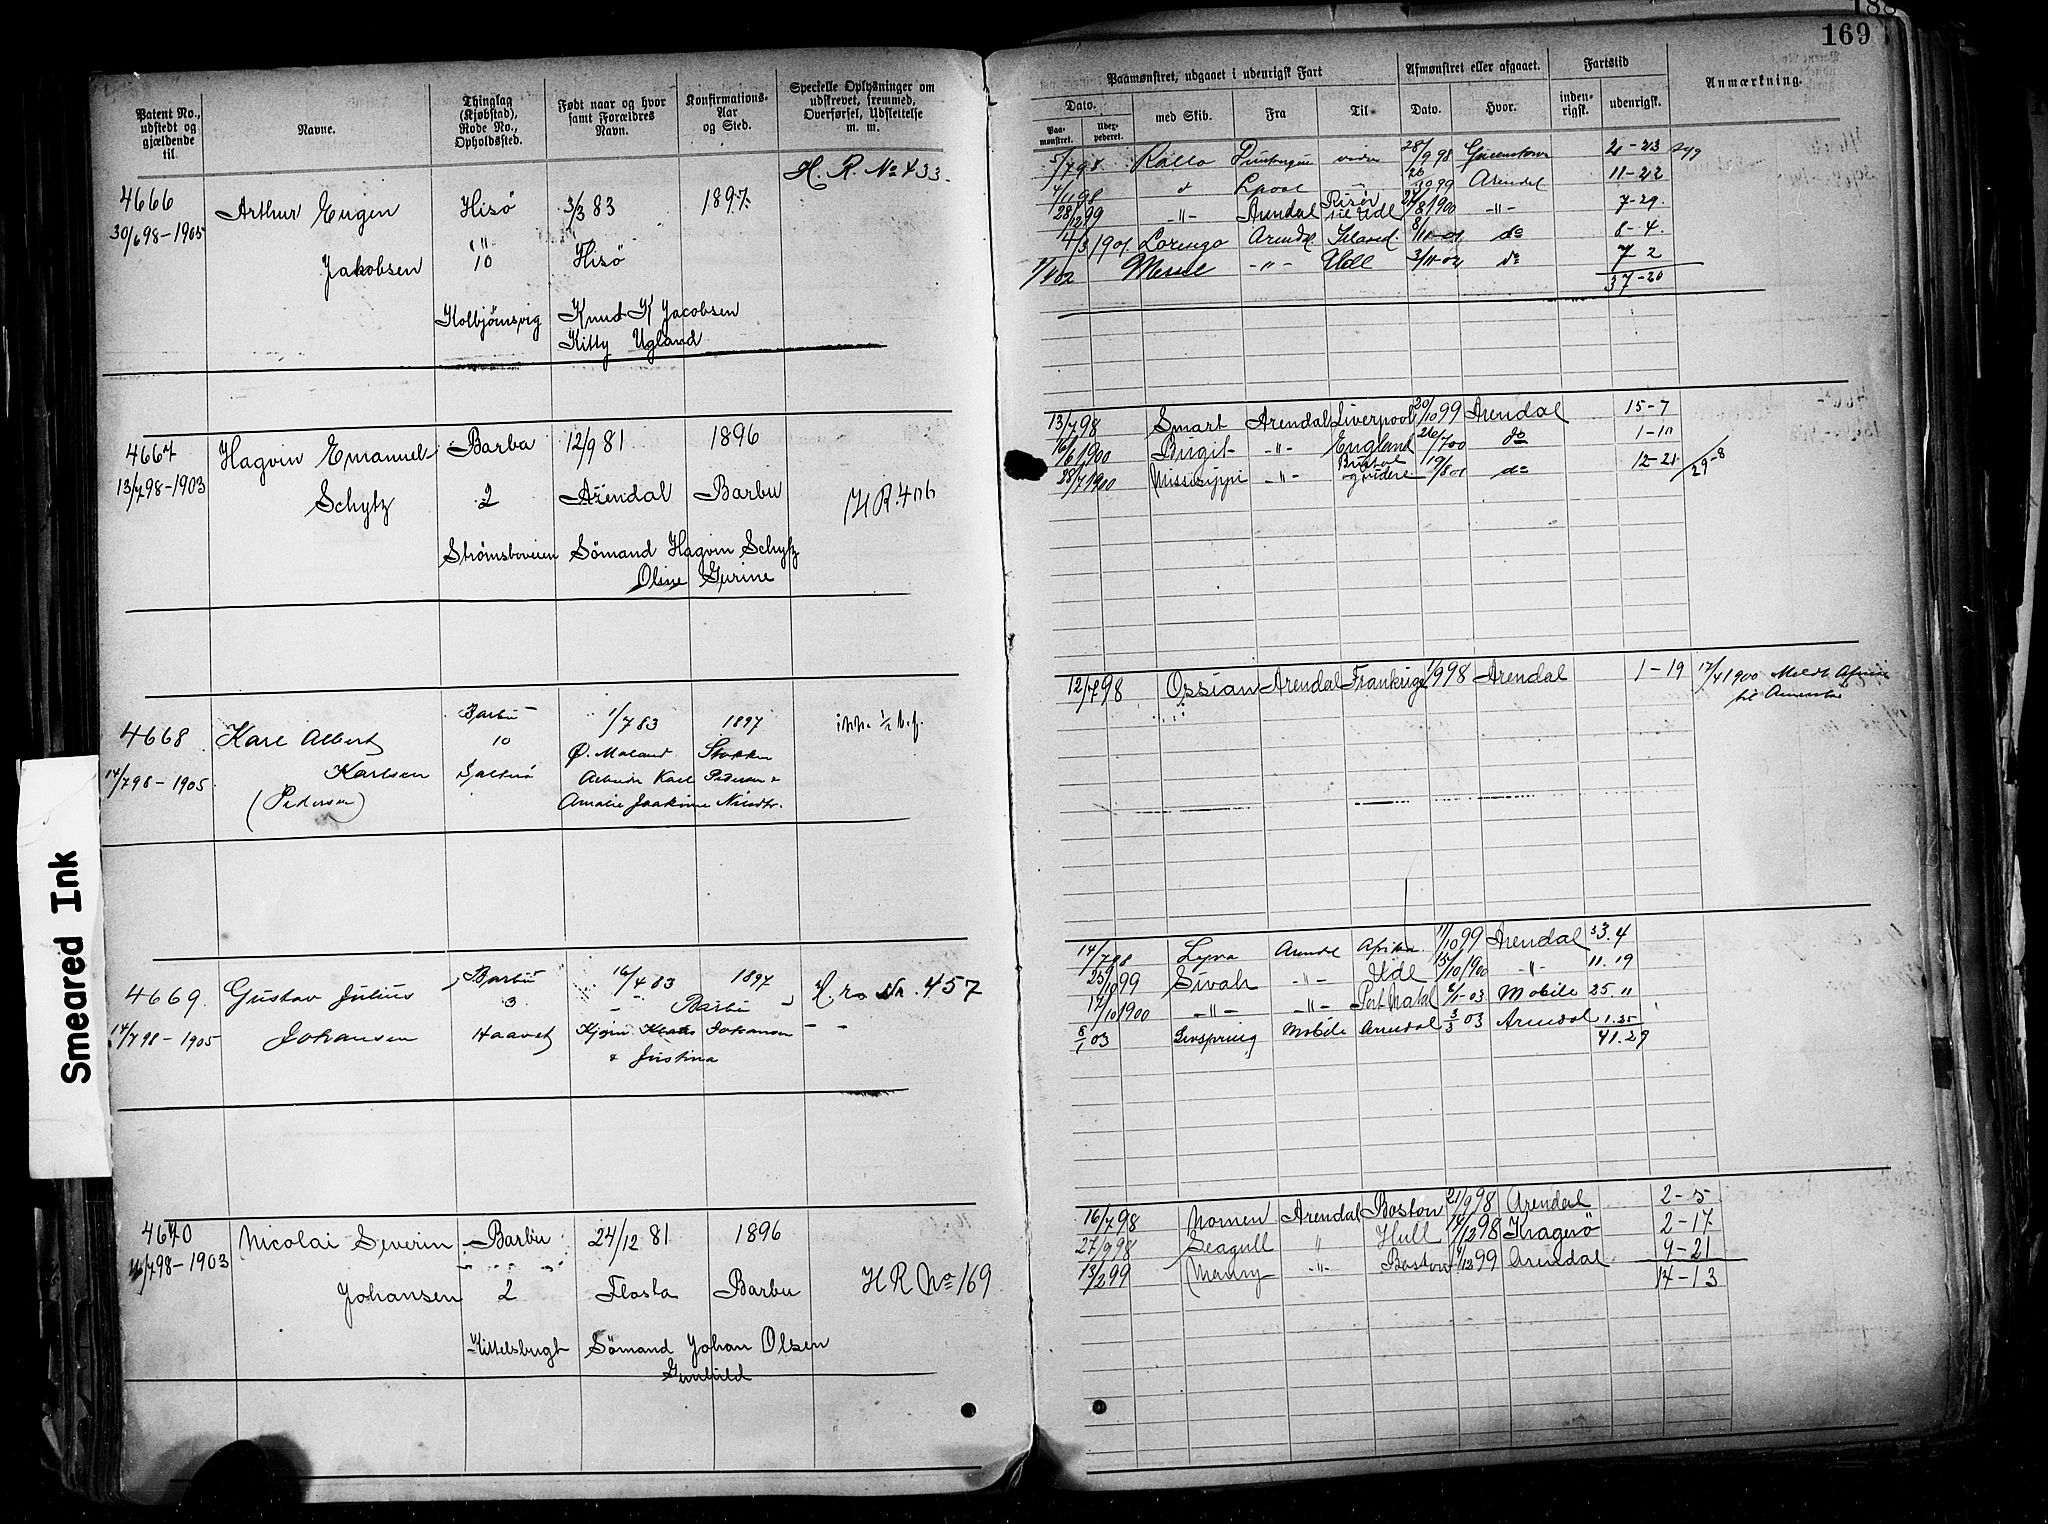 188
169
Patent No., udstedt og gjældende til.
Navne.
Thinglag (Kjøbstad), Rode No., Opholdssted.
Født naar og hvor samt Forældres Navn.
Konfirmations-Aar og Sted.
Specielle Oplysninger om udskrevet, fremmed, Overførsel, Udslettelse m. m.
Paamønstret, udgaaet i udenrigsk Fart
Dato.
Paamønstret.
med Skib.
Fra
Til
Afmønstret eller afgaaet.
Dato.
Hvor.
Fartstid
indenrigsk.
udenrigsk.
Anmærkning.
H. R. No 433.
4666 Arthur Eugen Hisø 3/3 83 1897.
30/6 98-1905
Jakobsen 10 Hisø
Kolbjørnsvig Knud K Jacobsen
Kitty Ugland
5/7 98 Rollo 28/9 98 syg
4/11 98 99 Arendal 11-22
28/12 99 -"- Arendal Risør 8 1900 -"- 7-29.
til Udl
4/3 1901 Lorenzo Arendal Island do 8-4.
-"- Udl 3/11-02 do 7-2
37-20
4667 Hagvin Emanuel Barbu 12/9 81 1896
13/7 98-1903
Schytz 2 Arendal Barbu H R. 406
Strømsboveien Sömand Hagvin Schytz
Olsine Gurine
13/7 98 Smart Arendal Liverpool 20/10 99 Arendal 15-7
16/6 1900 Birgit -"- England 26/7 00 do 1-10
28/7 1900 Missisippi -"- 19/8 01 do 12-21 29-8
4668 Karl Albert Barbu 1/7 83 1897
14/7 98-1905. Karlsen 10 Ø. Moland Stokken
(Pedersen) Arbeider Karl Pedersen &
Amalie Joakime
12/7 98 Ossian Arendal Frankrige 1/9 98 Arendal 1-19 17/4 1900 Meldt
til
4669. Gustav Julius Barbu 16/4 83 1897 H. r. Nr. 457
3 Barbu
14/7 98-1905 Johansen Haavet Johansen
& Justina
14/7 98 Lyra Arendal Afrika 11/10 99 Arendal 3.4
25/10 99 Sivah -"- Udl 15/10 1900 -"- 11.19
17/10 1900 -"- -"- Port Natal Mobile 25.11
8/1 03 Livspring Mobile Arendal 3/3 03 Arendal 1.25
41.29
4670 Nicolai Severin Barbu 24/12 81 1896
16/7 98-1903
Johansen 2 Flosta Barbu H R No 169
Kittelsbugt Sömand Johan Olsen
Gunhild
16/7 98 Nornen Arendal Boston 21/9 98 Arendal 2-5
27/9 98 Seagull " Hull 14/12 98 Kragerø 2-17
13/2 99 -"- Boston 99 Arendal 9-21
14-13
Smeared Ink